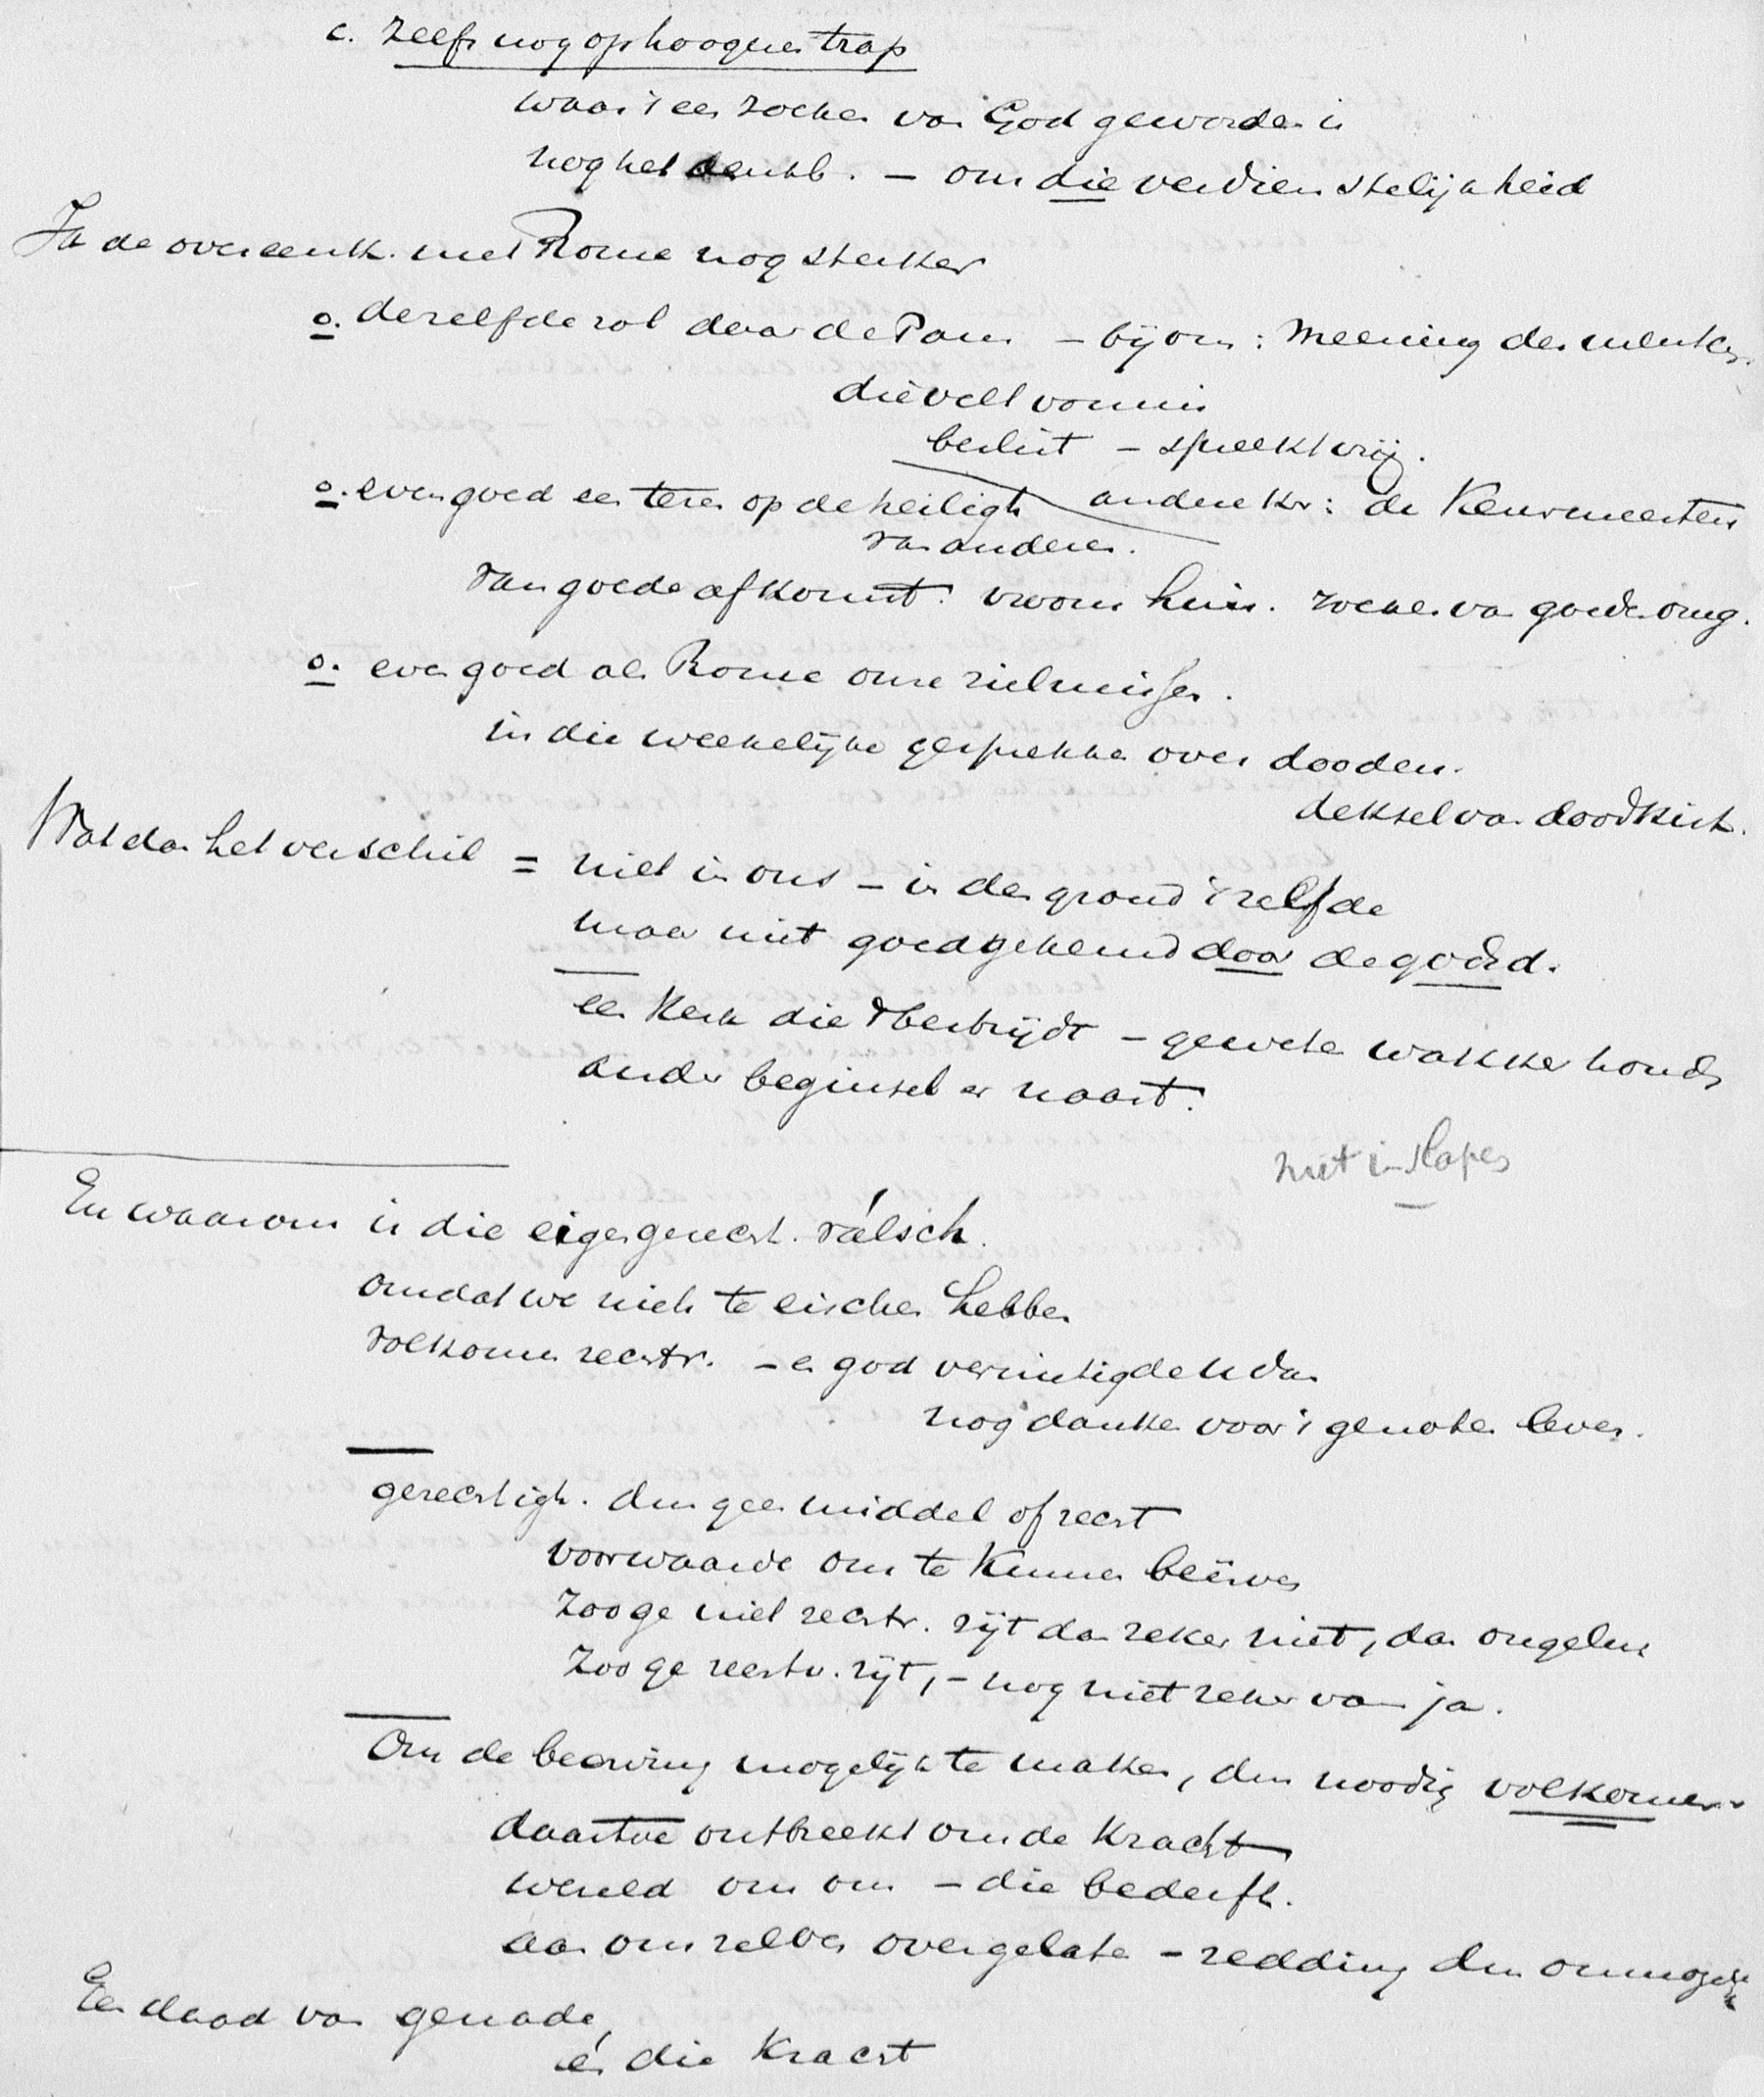 c. zelfs nog op hoogere trap
waar 't een zoeken van God geworden is
nog het denkb. – om die verdienstelijkheid
Ja de overeenk. met Rome nog sterker
o. dezelfde rol daar de Paus – bij ons: meening der menschen.
die velt vonnis
beslist – spreekt vrij.
o. evengoed een teren op de heiligh andere kr: de Keurmeesters
van anderen.
van goede afkomst: vroom huis. zoeken van goede omg.
o. even goed als Rome onze zielmissen.
in die weekelijke gesprekken over dooden.
deksel van doodkist.
Wat dan het verschil = niet in ons – in den grond 't zelfde
maar niet goedgekeurd door de godsd.
een Kerk die 't bestrijdt – geweten wakker houdt
ander beginsel er naast.
niet in slapen
En waarom is die eigengerecht. valsch.
omdat we niets te eischen hebben
volkomen rechtv. – en God vernietigde u dan
nog danken voor 't genoten leven.
gerechtigh. dus geen middel of recht
voorwaarde om te kunnen beërven
Zoo ge niet rechtv. zijt dan zeker niet, dan ongeluk
Zoo ge rechtv. zijt, – nog niet zeker van ja.
Om de beerving mogelijk te maken, dus noodig volkomen
daartoe ontbreekt ons de Kracht
wereld om ons – die bederft.
aan ons zelven overgelaten – redding dus onmogelijk
Een daad van genade,
én die Kracht